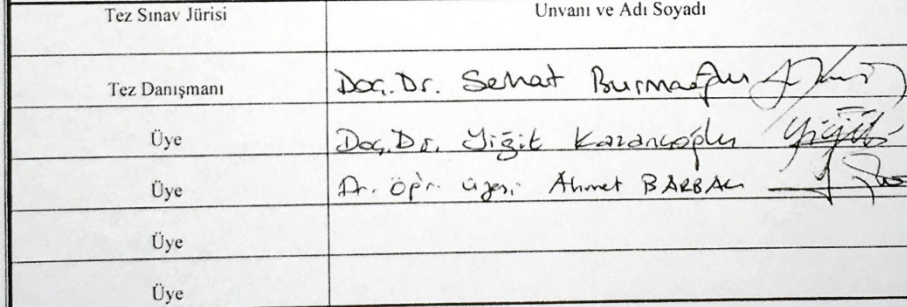 Tez Sınav Jürisi Unvanı ve Adı Soyadı
Tez Danışmanı Doç. Dr. Serhat Burmaoğlu
Üye Doç. Dr. Yiğit Kazançoğlu
Üye Dr. Öğr. Üyesi Ahmet
Üye
Üye